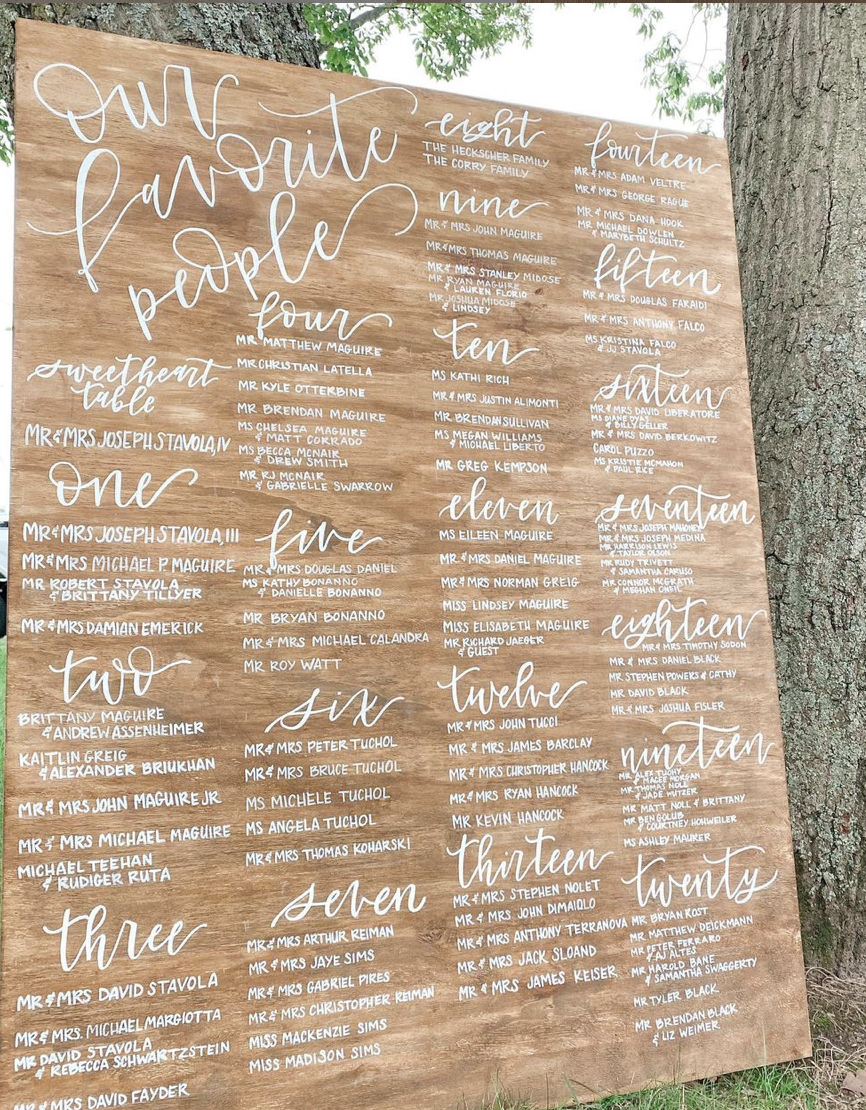 our
favorite
people
sweetheart
table
MR & MRS JOSEPH STAVOLA, IV
one
MR & MRS JOSEPH STAVOLA, III
MR & MRS MICHAEL P. MAGUIRE
MR ROBERT STAVOLA
& BRITTANY TILLYER
MR & MRS DAMIAN EMERICK
two
BRITTANY MAGUIRE
& ANDREW ASSENHEIMER
KAITLIN GREIG
& ALEXANDER BRIUKHAN
MR & MRS JOHN MAGUIRE JR
MR & MRS MICHAEL MAGUIRE
MICHAEL TEEHAN
& RUDIGER RUTA
three
MR & MRS DAVID STAVOLA
MR & MRS. MICHAEL MARGIOTTA
MR DAVID STAVOLA
& REBECCA SCHWARTZSTEIN
MR & MRS DAVID FAYDER
four
MR MATTHEW MAGUIRE
MR CHRISTIAN LATELLA
MR KYLE OTTERBINE
MR BRENDAN MAGUIRE
MS CHELSEA MAGUIRE
& MATT CORRADO
MS BECCA MCNAIR
& DREW SMITH
MR RJ MCNAIR
& GABRIELLE SWARROW
five
MR & MRS DOUGLAS DANIEL
MS KATHY BONANNO
& DANIELLE BONANNO
MR BRYAN BONANNO
MR & MRS MICHAEL CALANDRA
MR ROY WATT
six
MR & MRS PETER TUCHOL
MR & MRS BRUCE TUCHOL
MS MICHELE TUCHOL
MS ANGELA TUCHOL
MR & MRS THOMAS KOHARSKI
seven
MR & MRS ARTHUR REIMAN
MR & MRS JAYE SIMS
MR & MRS GABRIEL PIRES
MR & MRS CHRISTOPHER REIMAN
MISS MACKENZIE SIMS
MISS MADISON SIMS
eight
THE HECKSCHER FAMILY
THE CORRY FAMILY
nine
MR & MRS JOHN MAGUIRE
MR & MRS THOMAS MAGUIRE
MR & MRS STANLEY MIDOSE
MR RYAN MAGUIRE
& LAUREN FLORIO
MR JOSHUA MIDOSE
& LINDSEY
ten
MS KATHI RICH
MR & MRS JUSTIN ALIMONTI
MR BRENDAN SULLIVAN
MS MEGAN WILLIAMS
& MICHAEL LIBERTO
MR GREG KEMPSON
eleven
MS EILEEN MAGUIRE
MR & MRS DANIEL MAGUIRE
MR & MRS NORMAN GREIG
MISS LINDSEY MAGUIRE
MISS ELISABETH MAGUIRE
MR RICHARD JAEGER
& GUEST
twelve
MR & MRS JOHN TUCCI
MR & MRS JAMES BARCLAY
MR & MRS CHRISTOPHER HANCOCK
MR & MRS RYAN HANCOCK
MR KEVIN HANCOCK
thirteen
MR & MRS STEPHEN NOLET
MR & MRS JOHN DIMAIOLO
MR & MRS ANTHONY TERRANOVA
MR & MRS JACK SLOAND
MR & MRS JAMES KEISER
fourteen
MR & MRS ADAM VELTRE
MR & MRS GEORGE RAGUE
MR & MRS DANA HOOK
MR MICHAEL DOWLEN
& MARYBETH SCHULTZ
fifteen
MR & MRS DOUGLAS FARAIDI
MR & MRS ANTHONY FALCO
MS KRISTINA FALCO
& JJ STAVOLA
sixteen
MR & MRS DAVID LIBERATORE
MS DIANE DYAS
& BILLY GELLER
MR & MRS DAVID BERKOWITZ
CAROL PUZZO
MS KRISTIE MCMAHON
& PAUL RICE
seventeen
MR & MRS JOSEPH MAHONEY
MR & MRS JOSEPH MEDINA
MR HARRISON LEWIS
& TAYLOR OLSON
MR RUDY TRIVETT
& SAMANTHA CARUSO
MR CONNOR MCGRATH
& MEGHAN ONEIL
eighteen
MR & MRS TIMOTHY SODON
MR & MRS DANIEL BLACK
MR STEPHEN POWERS & CATHY
MR DAVID BLACK
MR & MRS JOSHUA FISLER
nineteen
MR ALEX TUCHY
& MACEE MORGAN
MR THOMAS NOLE
& JADE WUTZER
MR MATT NOLL & BRITTANY
MR BEN GOLUB
& COURTNEY HOHWEILER
MS ASHLEY MAURER
twenty
MR BRYAN ROST
MR MATTHEW DEICKMANN
MR PETER FERRARO
& AJ ALTES
MR HAROLD BANE
& SAMANTHA SWAGGERTY
MR TYLER BLACK
MR BRENDAN BLACK
& LIZ WEIMER